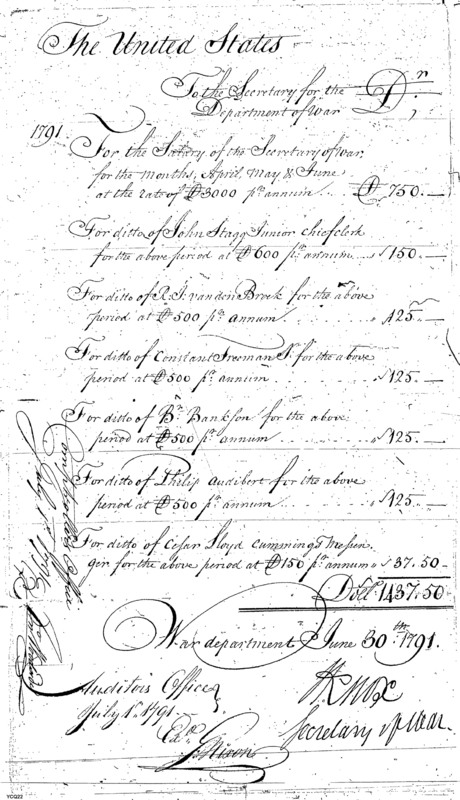 The United States
To the Secretary for the Dr
Department of War
1791
For the Salary of the Secretary of War,
for the months, April, May & June
at the rate of D 3000 pr annum .. D 750. —
For ditto of John Stagg Junior chief clerk
for the above period at D 600 pr annum .. 150. —
For ditto of R. J. vanden Broek for the above
period at D 500 pr annum .......... 125. —
For ditto of Constant Freeman Jr. for the above
period at D 500 pr annum .......... 125. —
For ditto of Bn. Bankson for the above
period at D 500 pr annum .......... 125. —
For ditto of Philip Audibert for the above
period at D 500 pr annum .......... 125. —
For ditto of Cesar Lloyd Cummings Messen
ger for the above period at D 150 pr annum 37.50 —
Dolls. 1437.50
War department June 30th 1791.
HKnox
Secretary of War
Auditors Office
July 1st. 1791
Comptrollers Office
July 1
YCQ22